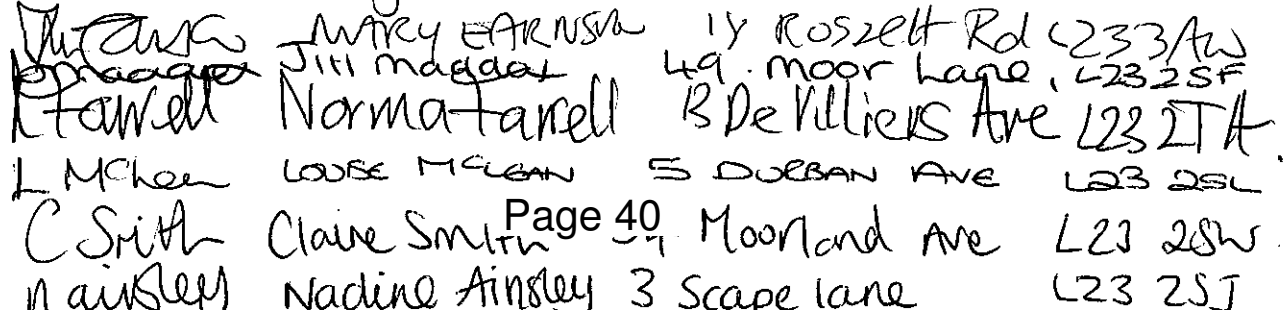 MARY EARNSHW 14 ROSZELL Rd L233AW
Jill maggar 49. moor Lane. L23 2SF
N Farrell Norma Farrell 13 De Villiers Ave L23 2TH.
L McLean LOUISE MCLEAN 5 DURBAN AVE L23 2SL
C Smith Claire Smith Moorland Ave L23 2SW.
Page 40
n ainsley Nadine Ainsley 3 Scape lane L23 2SJ